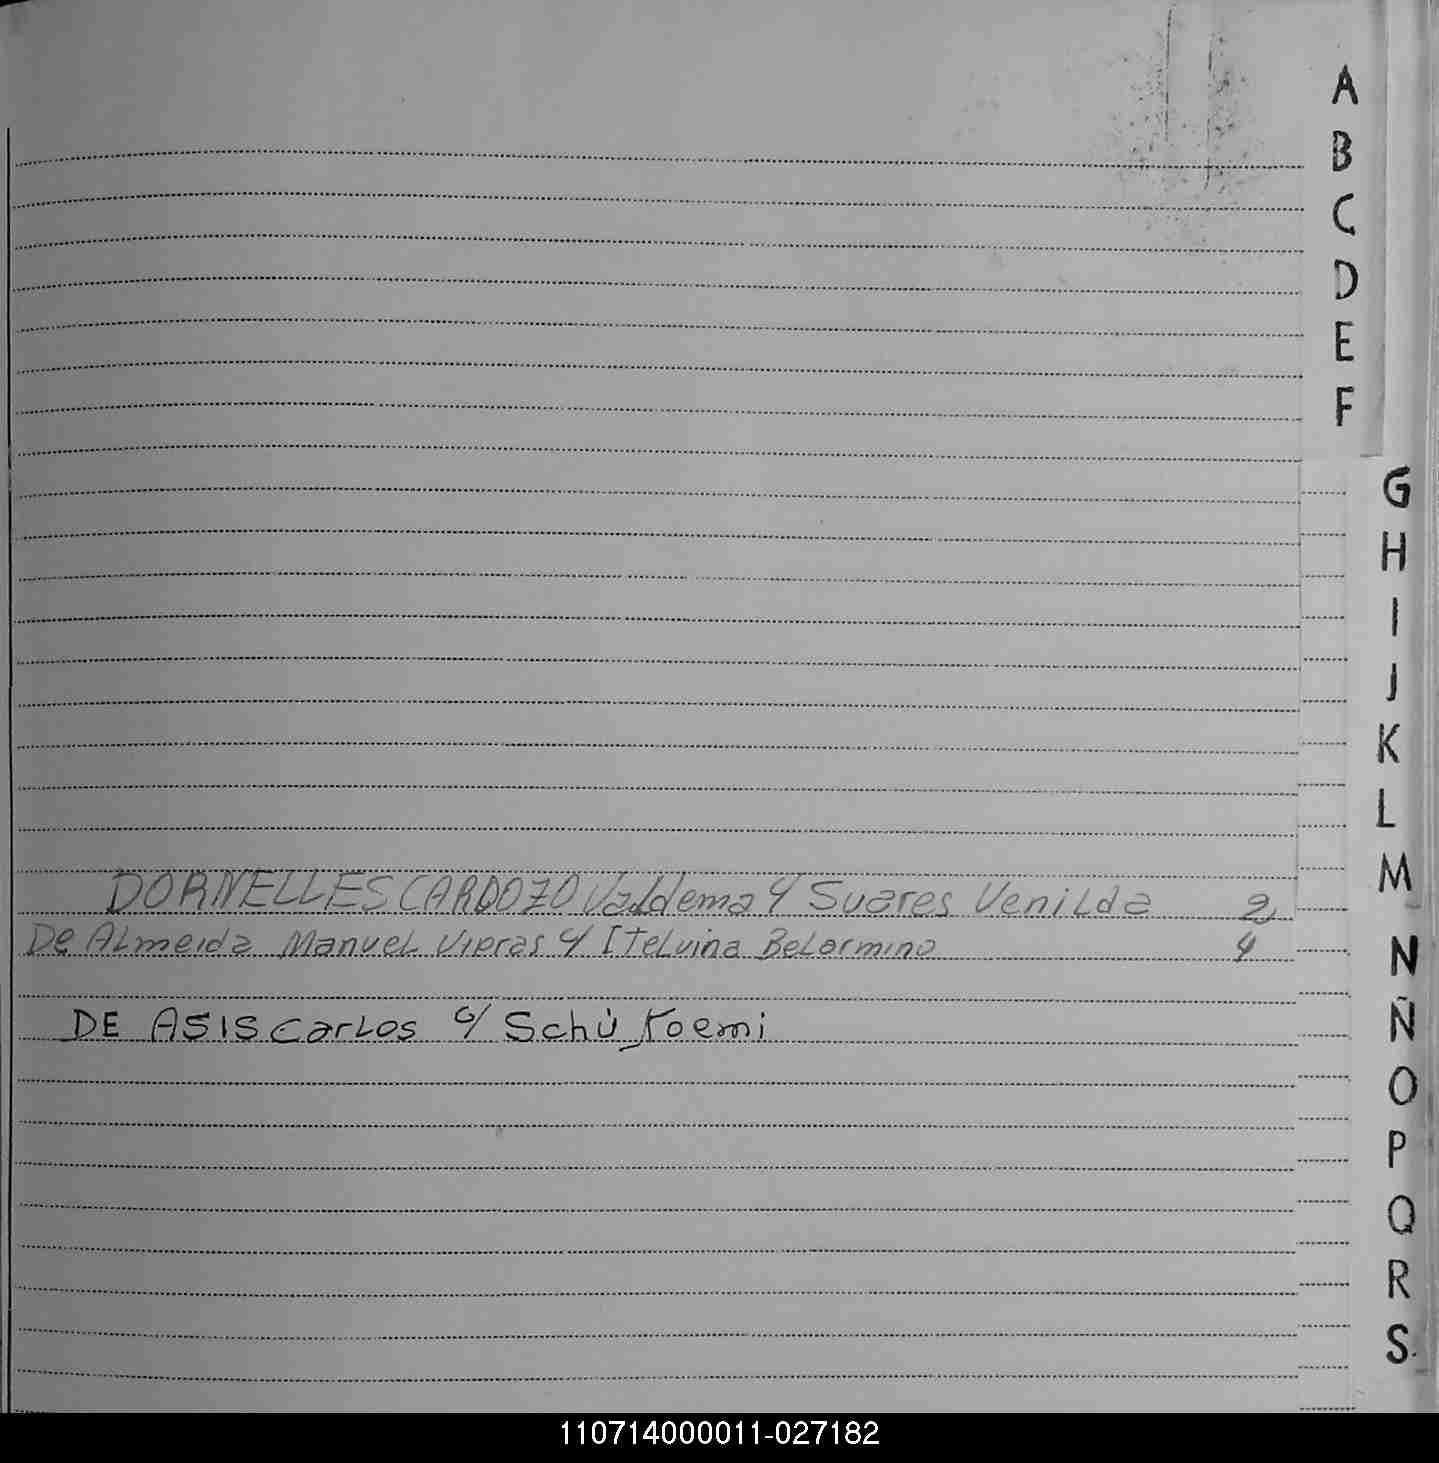 A
B
C
D
E
F
G
H
I
J
K
L
M
DORNELLES CARDOZO Valdema y Suares Venilda 2
De Almeida Manuel Vieras y Itelvina Belormino 4
N
DE ASIS Carlos c/ Schú Koemi
Ñ
O
P
Q
R
S
110714000011-027182